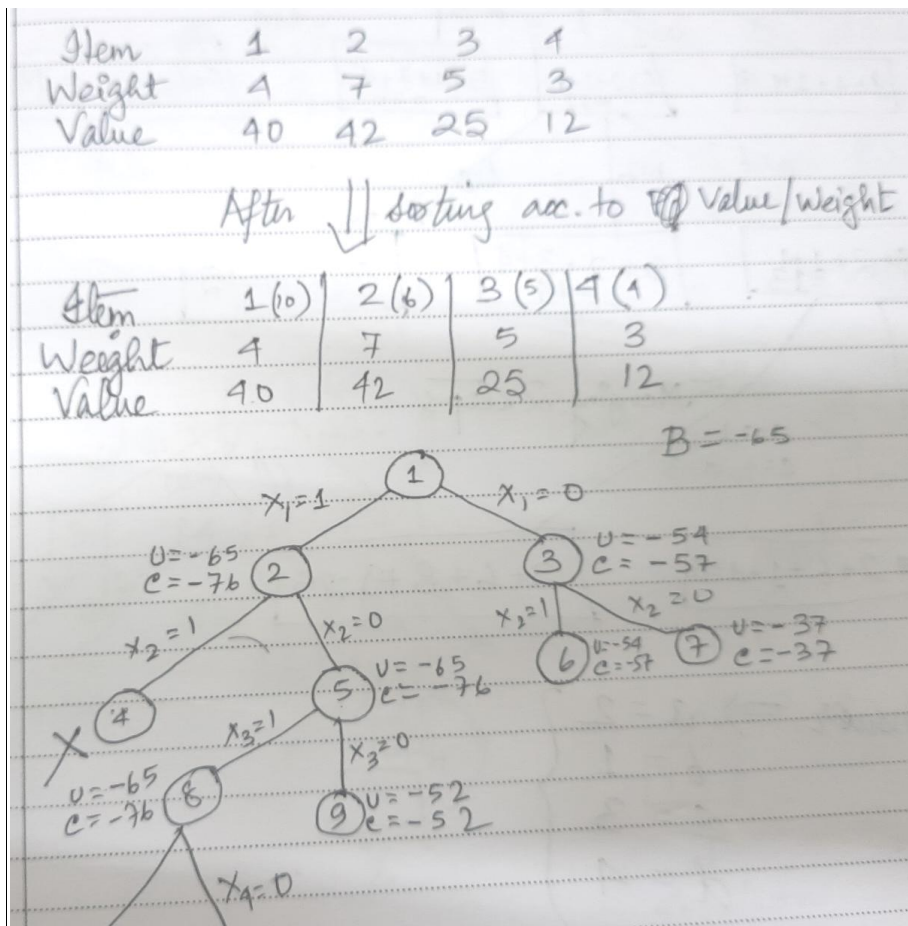 Item 1 2 3 4
Weight 4 7 5 3
Value 40 42 25 12
After sorting acc. to Value/Weight
Item 1(10) 2(6) 3(5) 4(4)
Weight 4 7 5 3
Value 40 42 25 12
B = -65
1
X₁=1 X₁=0
U=-65
C=-76 2 3 U=-54
C=-57
X₂=1 X₂=0 X₂=1 X₂=0
4 5 U=-65
C=-76 6 U=-54
C=-57 7 U=-37
C=-37
X
X₃=1 X₃=0
U=-65
C=-76 8 9 U=-52
C=-52
X₄=0